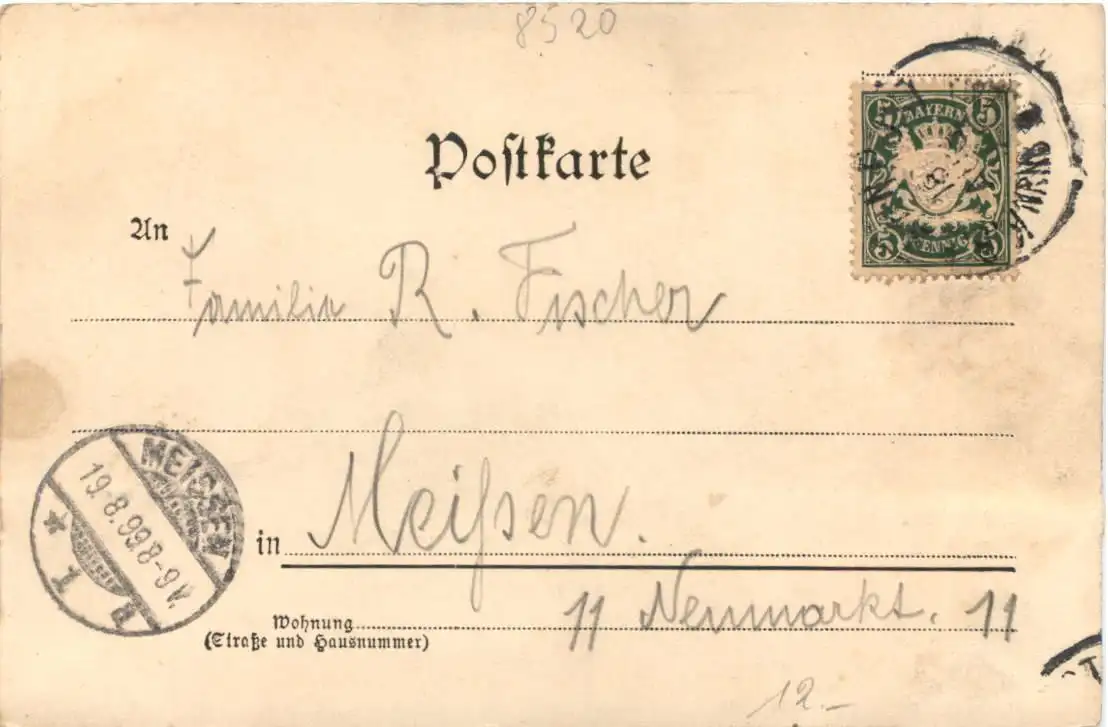 8520
5 BAYERN 5
5 PFENNIG 5
Postkarte
An Familie R. Fischer
MEISSEN
19.8.99.8-9V.
* 1
in Meißen.
Wohnung
(Straße und Hausnummer)
11 Neumarkt. 11
12.-